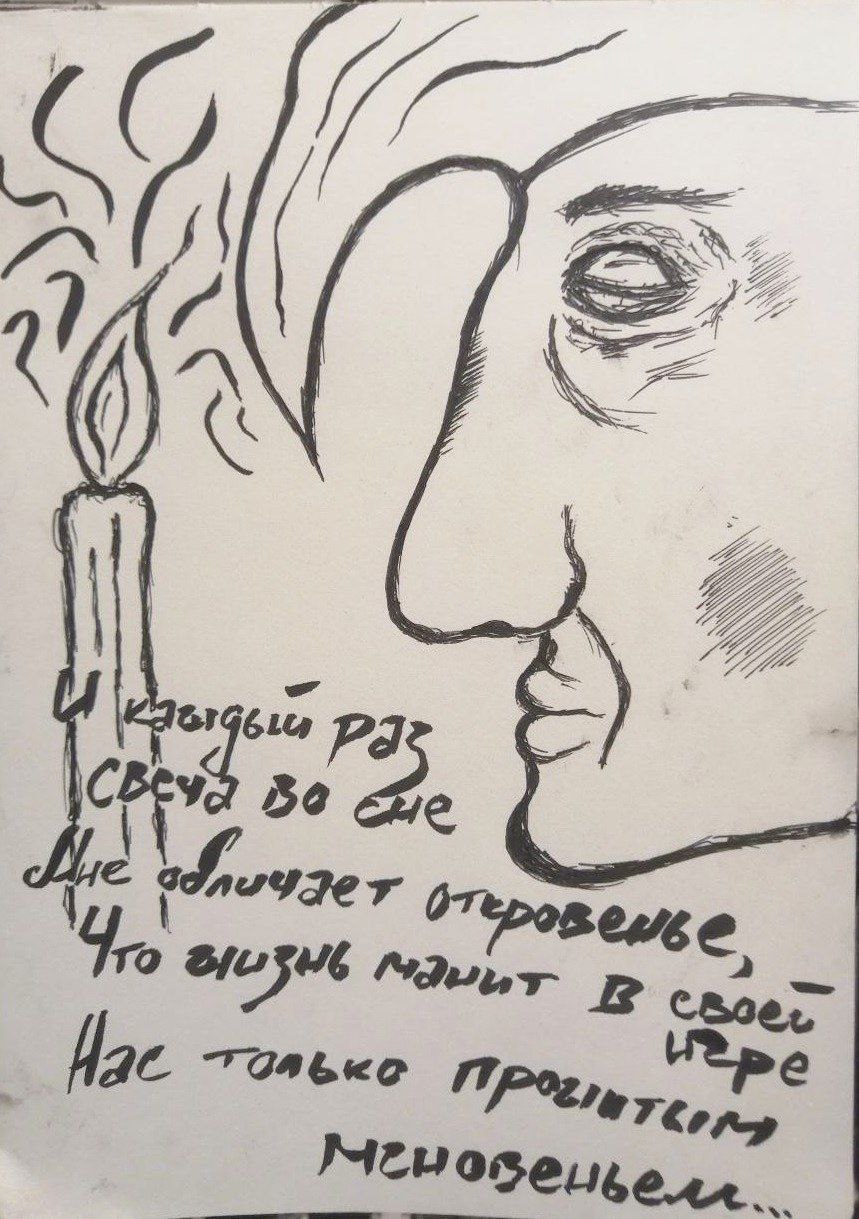 И каждый раз
свеча во сне
Мне обличает откровенье,
Что жизнь манит в своей
игре
Нас только прожитым
мгновеньем...